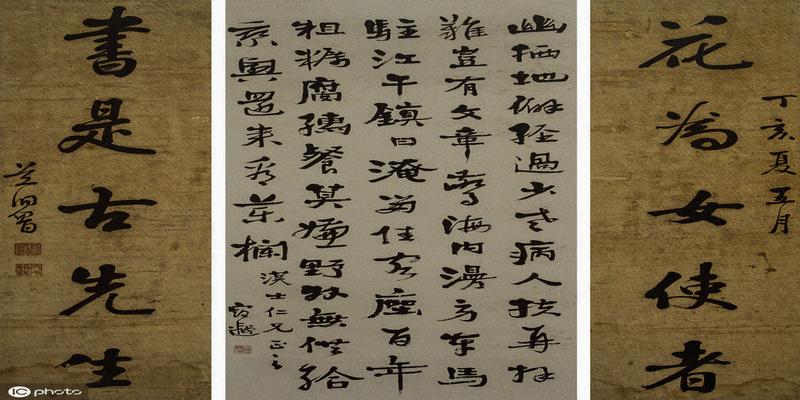 丁亥夏五月
花為女使者
幽栖地僻經過少老病人扶再拜
難豈有文章驚海內漫勞車馬
駐江干鎮日淹留佳客座百年
粗糲腐儒餐莫嫌野外無供給
乘興還來看藥欄
漢士仁兄正之
書是古先生
IC photo